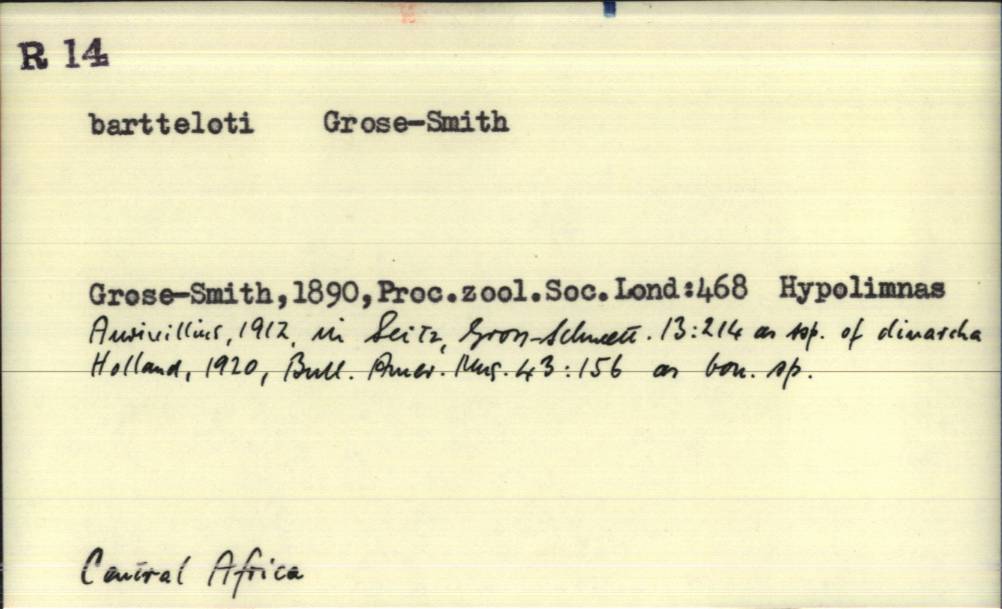 R 14
bartteloti Grose-Smith
Grose-Smith,1890,Proc.zool.Soc.Lond:468 Hypolimnas
Aurivillius, 1912, in Seitz, Gross-Schmett. 13:214 as ssp. of dinarcha
Holland, 1920, Bull. Amer. Mus. 43:156 as bon. sp.
Central Africa